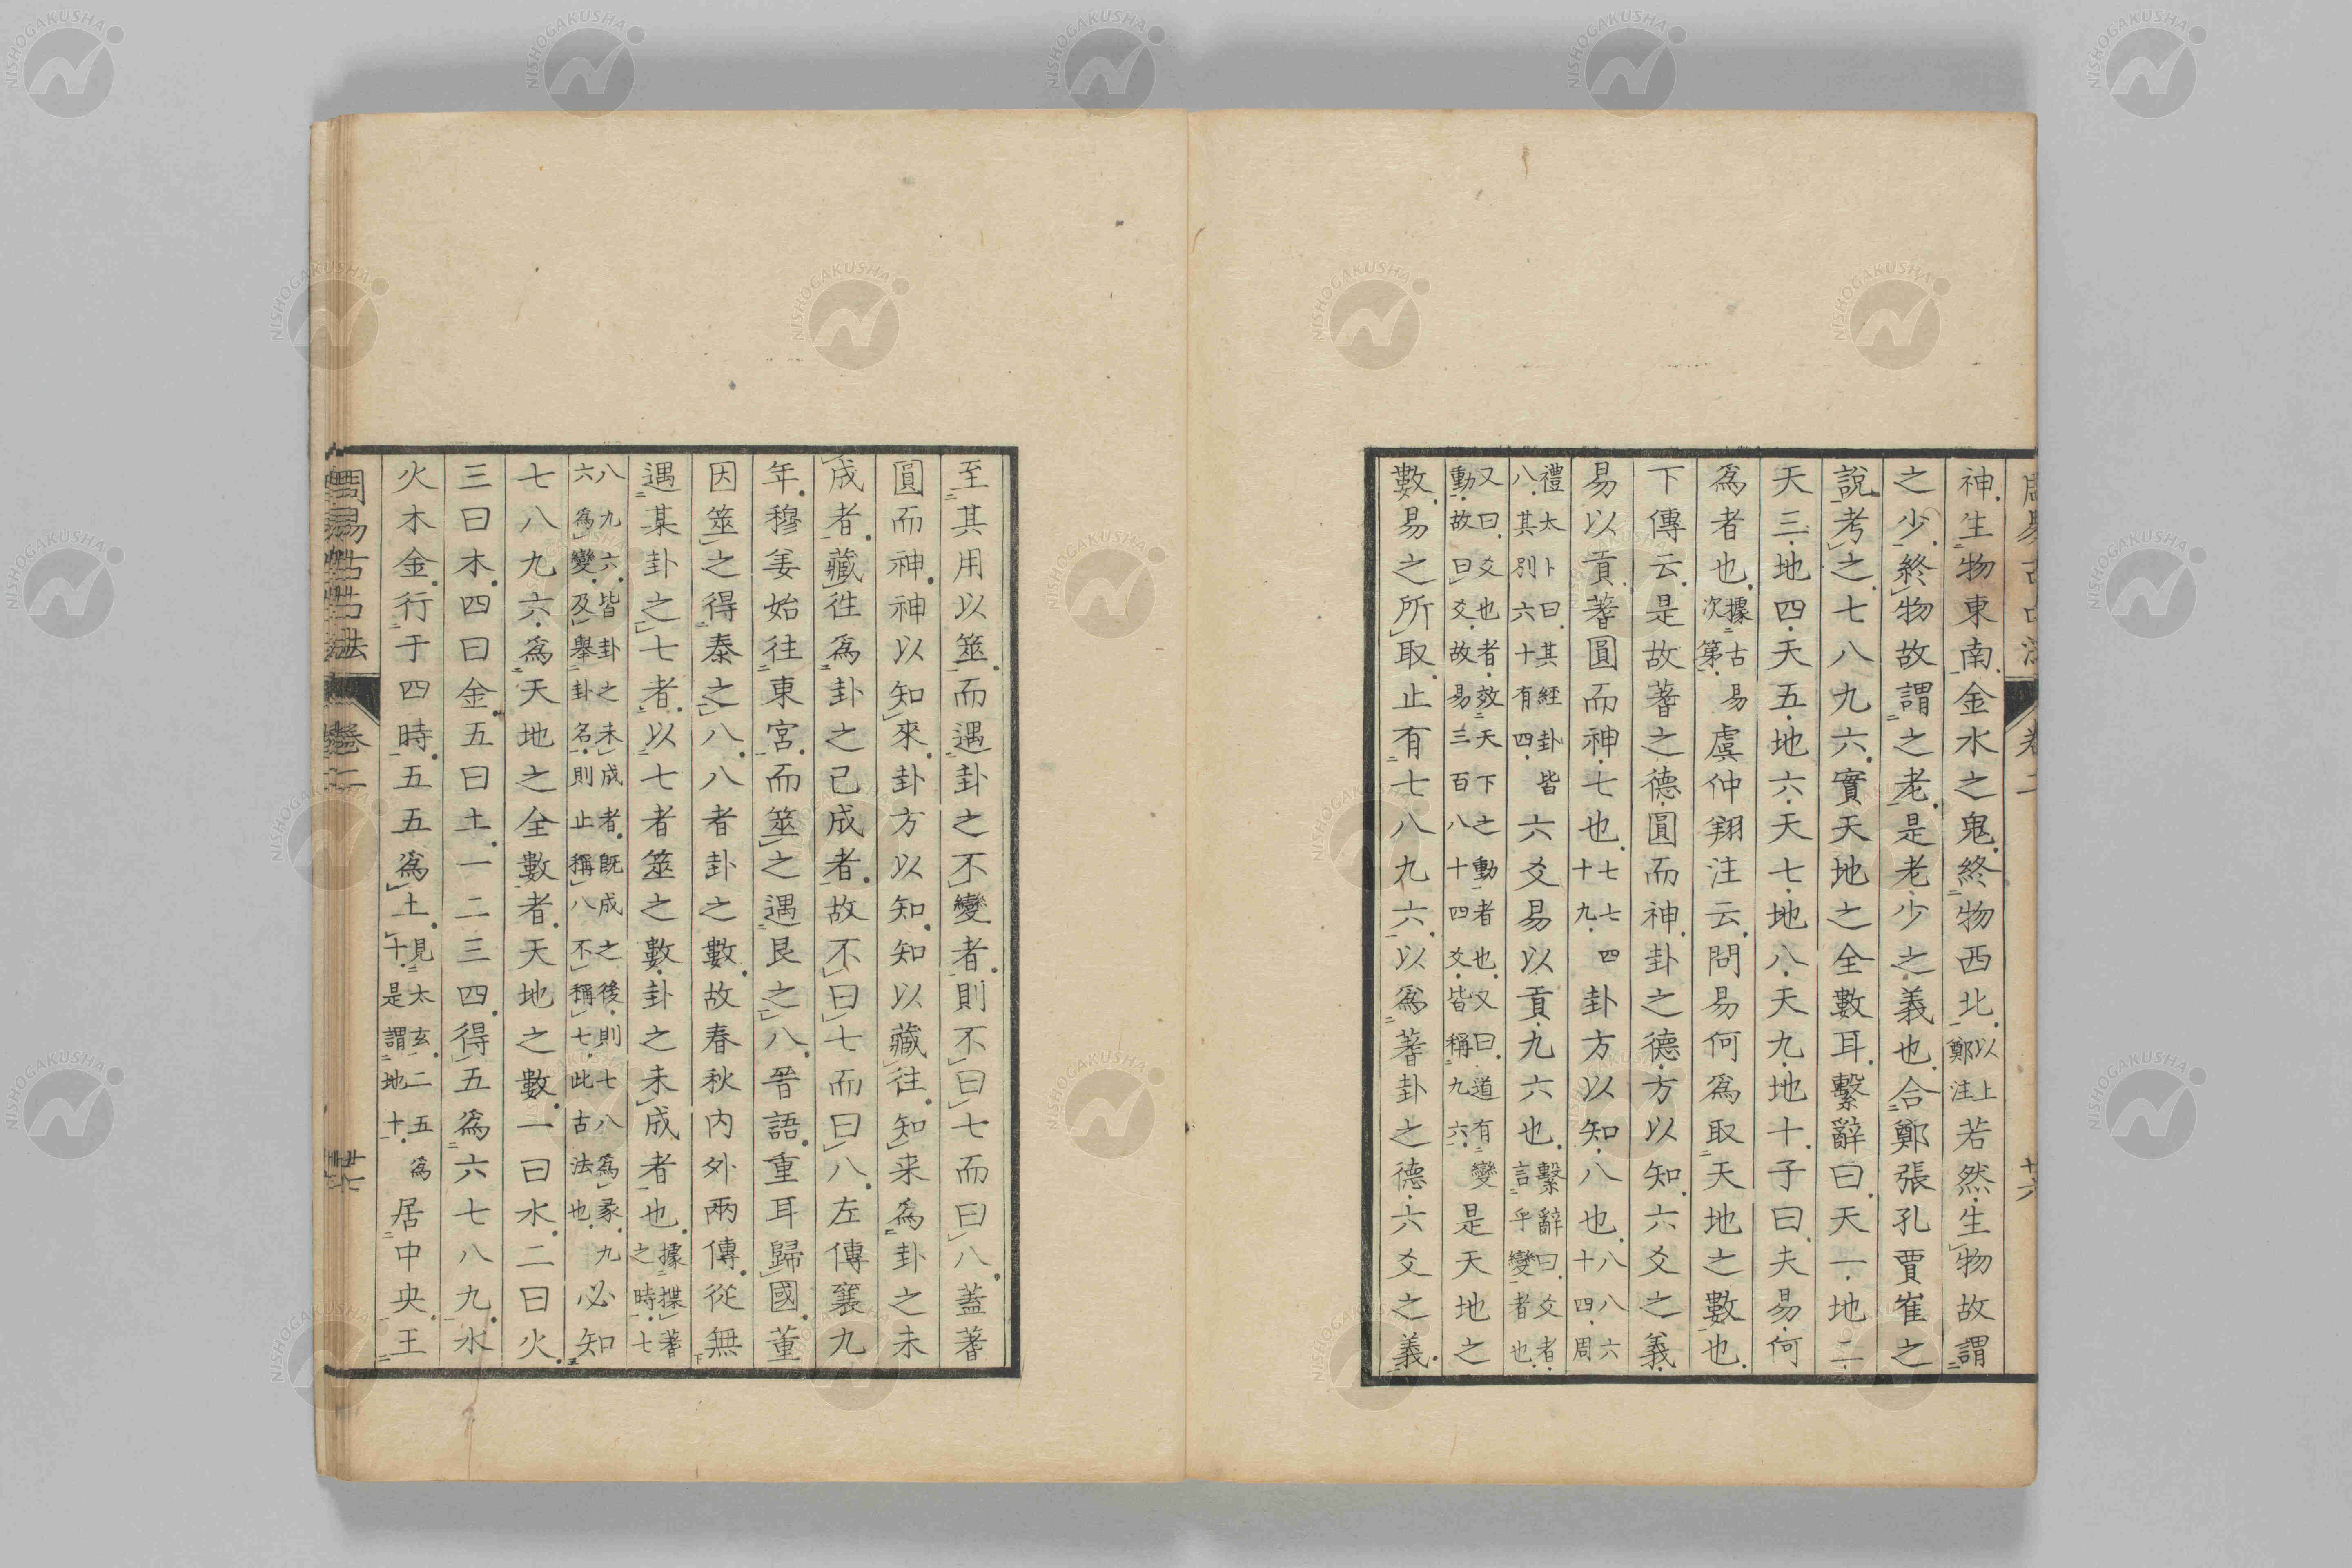 神生物東南金水之鬼終物西北以上鄭注若然生物故謂
之少終物故謂之老是老少之義也合鄭張孔賈崔之
說考之七八九六實天地之全數耳繫辭曰天一地二
天三地四天五地六天七地八天九地十子曰夫易何
爲者也據古易次第虞仲翔注云問易何爲取天地之數也
下傳云是故蓍之德圓而神卦之德方以知六爻之義
易以貢蓍圓而神七也七七四十九卦方以知八也八八六十四周
禮太卜曰其經卦皆八其別六十有四六爻易以貢九六也繫辭曰爻者言乎變者也
又曰爻也者效天下之動者也又曰道有變動故曰爻故易三百八十四爻皆稱九六是天地之
數易之所取止有七八九六以爲蓍卦之德六爻之義
至其用以筮而遇卦之不變者則不曰七而曰八蓋蓍
圓而神神以知來卦方以知知以藏往知来爲卦之未
成者藏徃爲卦之已成者故不曰七而曰八左傳襄九
年穆姜始往東宮而筮之遇艮之八晉語重耳歸國董
因筮之得泰之八八者卦之數故春秋内外兩傳從無
遇某卦之七者以七者筮之數卦之未成者也據揲蓍之時七
八九六皆卦之未成者既成之後則七八爲彖九六爲變及舉卦名則止稱八不稱七此古法也必知
七八九六爲天地之全數者天地之數一曰水二曰火
三曰木四曰金五曰土一二三四得五爲六七八九水
火木金行于四時五五爲土見太玄二五爲十是謂地十居中央王
周易古占法 卷二